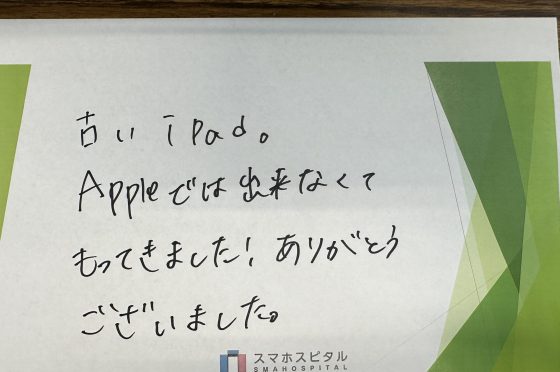 古い iPad。
Appleでは出来なくて
もってきました！ありがとう
ございました。
スマホスピタル
SMAHOSPITAL